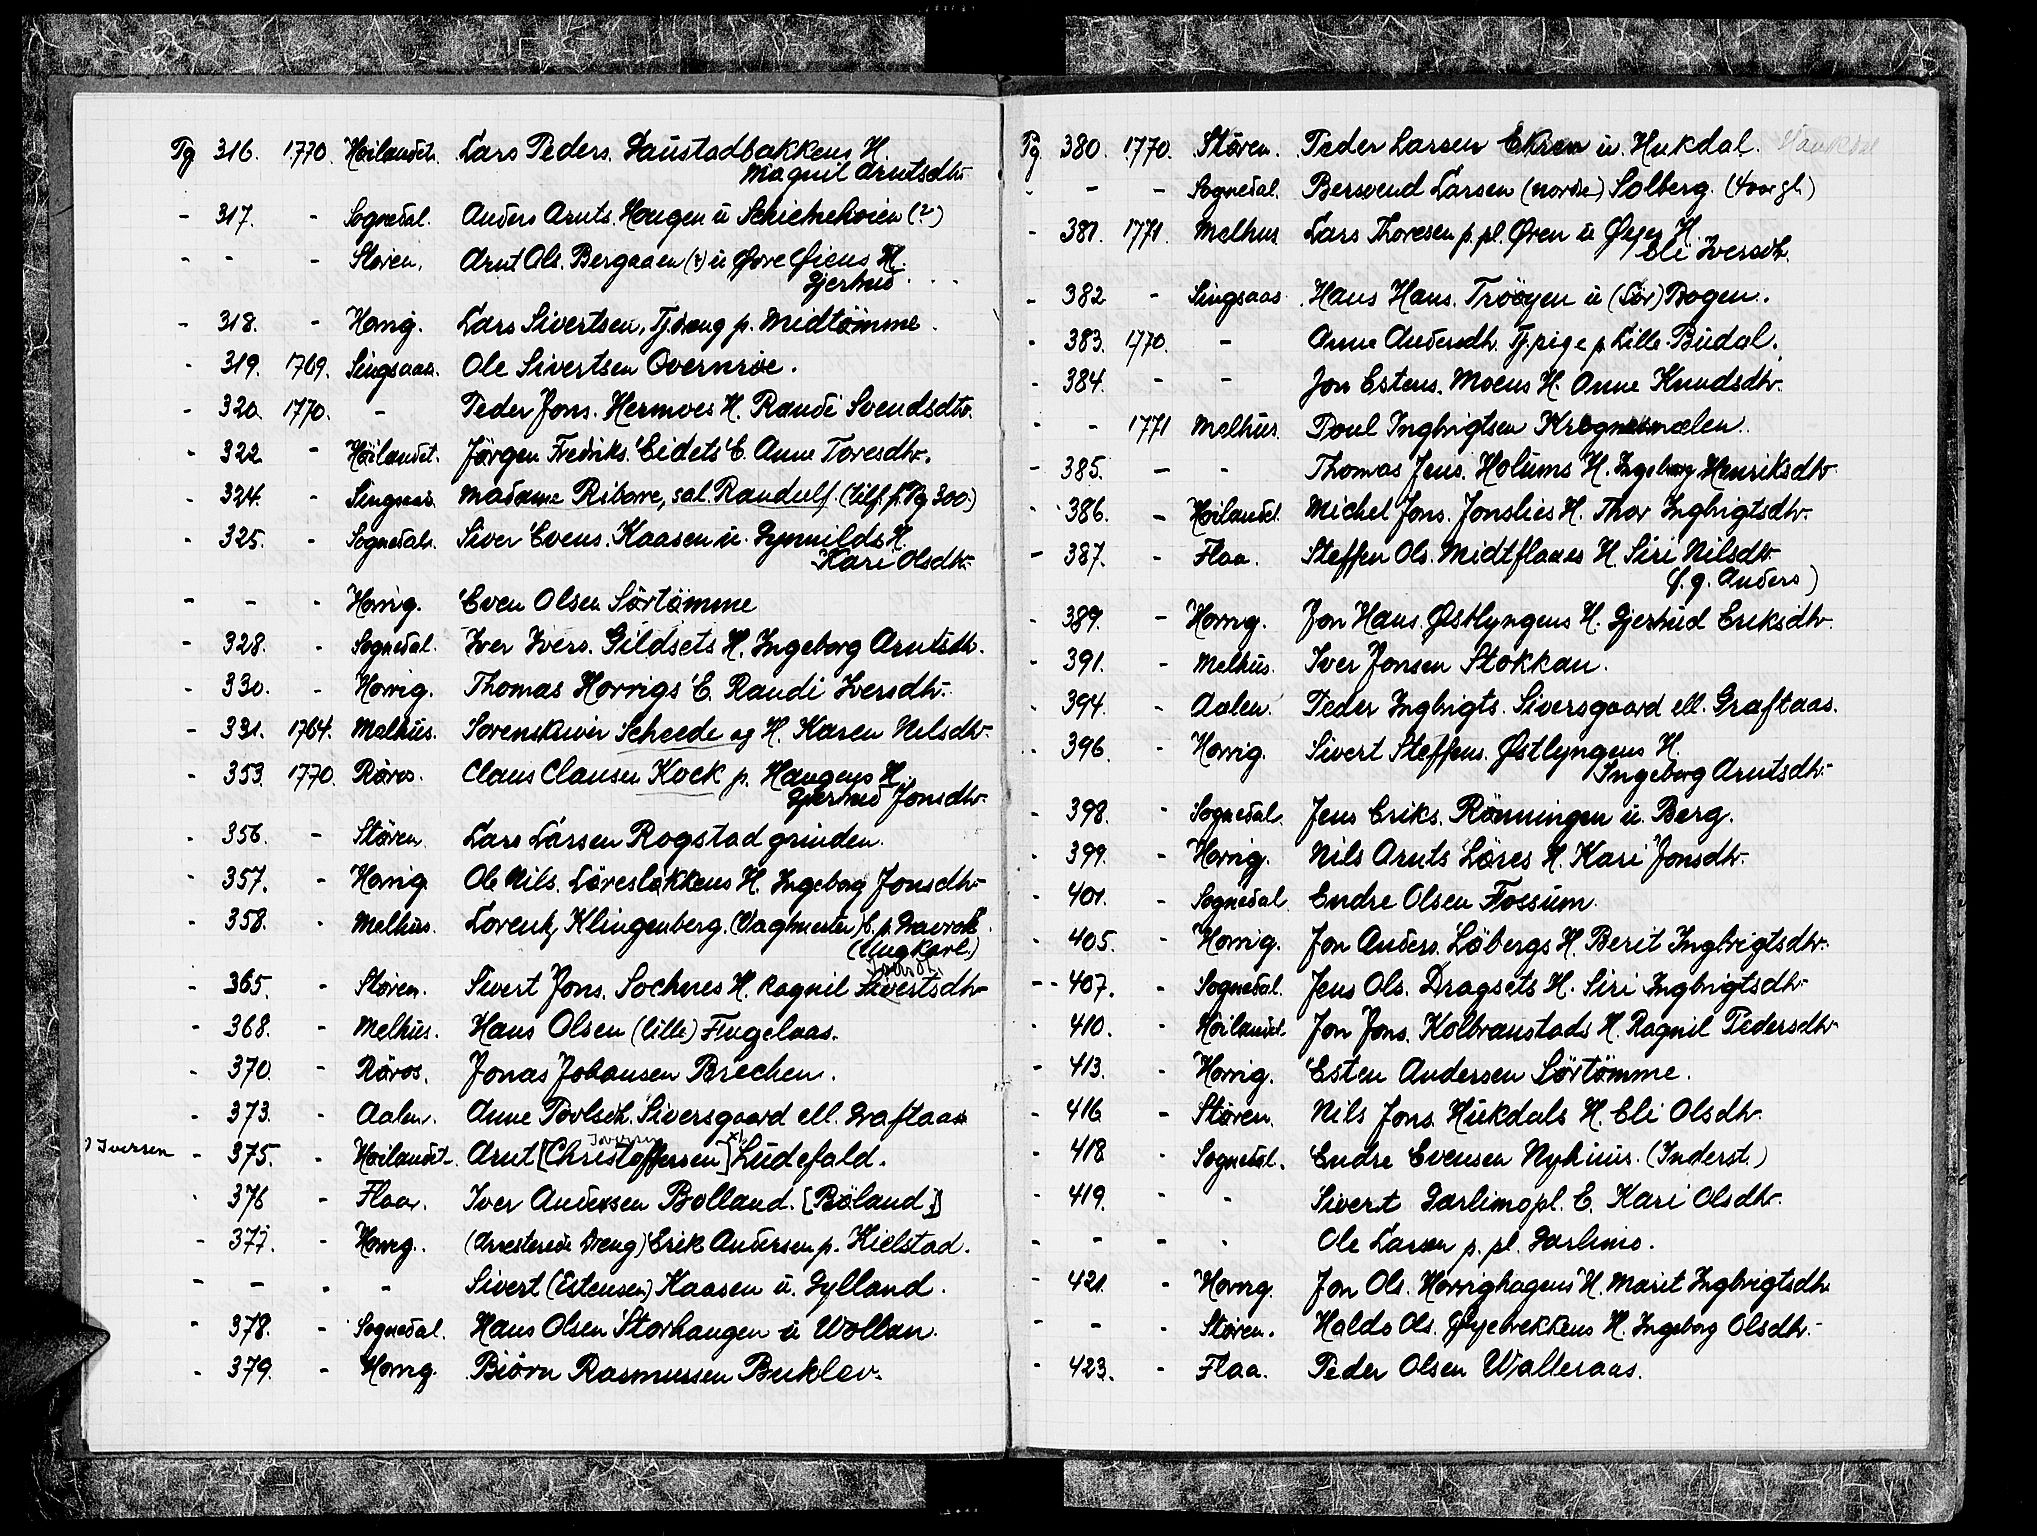 Pg 316. 1770. Høilandet. Lars Peders. Gaustadbakkens H.
Magnil Arntsdtr.
- 317. - Sognedal. Anders Arnts. Haugen u Schichehoien (?)
- - - Støren. Arnt Ols. Bergaaen (?) u Øvre Øiens H.
Gjertrud . . .
- 318. - Horrig. Lars Sivertsen, Tj.dreng p. Midtömme.
- 319. 1769. Singsaas. Ole Sivertsen Overnröe.
- 320. 1770. - Peder Jons. Hermoes H. Randi Svendsdtr.
- 322 - Höilandet. Jörgen Fredriks. Eidets E. Anne Toresdtr.
- 324. - Singsaas. Madame Ribare, sal. Randulf. (tilf. f. Pg 300.)
- 325. - Sognedal. Siver Evens. Kaasen u. Gynnilds H.
Kari Olsdtr.
- - - Horrig. Even Olsen Sörtömme
- 328. - Sognedal. Iver Ivers. Gildsets H. Ingeborg Arntsdtr.
- 330. - Horrig. Thomas Horrigs E. Randi Iversdtr.
- 331. 1764. Melhus. Sorenskriver Scheede og H. Karen Nilsdtr.
- 353. 1770. Røros. Claus Clausen Kock p. Haugens H.
Gjertrud Jonsdtr.
- 356. - Støren. Lars Larsen Rogstadgrinden.
- 357. - Horrig Ole Nils. Löresløkkens H. Ingeborg Jonsdtr.
- 358. - Melhus. Lorentz Klingenberg. (Vagtmester) E. p. Gravrok
(Ungkarl.)
Jonsdt.
- 365. - Støren. Sivert Jons. Sochnes H. Ragnil Sivertsdtr
- 368. - Melhus. Hans Olsen (lille) Flugelaas.
- 370. - Røros. Jonas Johansen Brechen.
- 373. - Aalen. Anne Povlsdt. Siversgaard ell. Graftaas
Iversen
Iversen - 375. - Høilandet. Arnt [Christoffersen] Ludefald.
- 376 - Flaa. Iver Andersen Bolland. [Böland]
- 377. - Horrig. (Arresterede Dreng) Erik Andersen p. Kielstad.
- - . - Sivert (Estensen) Kaasen u. Gylland.
- 378. - Sognedal. Hans Olsen Storhaugen u Wollan.
- 379. - Horrig. Biörn Rasmussen Buklev.
Pg 380. 1770. Støren. Peder Larsen Ekren u. Hukdal. Haukdal
- - - Sognedal. Bersvend Larsen (nordre) Solberg. (4 aar gl.)
- 381. 1771. Melhus Lars Thoresen p. pl. Øren u Øyes H.
Eli Iversdtr.
- 382 - Singsaas. Hans Hans. Tröøyen u (Sör) Bogen.
- 383. 1770. - Anne Andersdtr. Tj.pige p. Lille-Budal.
- 384. - - Jon Estens. Moens H. Anne Knudsdtr.
- - 1771 Melhus. Poul Ingbrigtsen Krognesmælen.
- 385. - - Thomas Jens. Holums H. Ingeborg Henriksdtr
- 386. - Höilandet. Michel Jons. Jonslies H. Thor Ingbrigtsdtr.
- 387. - Flaa. Steffen Ols. Midtflaaes H. Siri Nilsdtr
(f. g. Anders)
- 389. - Horrig. Jon Hans. Østlyngens H. Gjertrud Eriksdtr.
- 391. - Melhus. Iver Jonsen Stokkan.
- 394. - Aalen. Peder Ingbrigts. Siversgaard ell. Graftaas.
- 396. - Horrig. Sivert Steffens. Østlyngens H.
Ingeborg Arntsdtr.
- 398. - Sognedal. Jens Eriks. Rönningen u. Berg.
- 399. - Horrig. Nils Arnts Löres H. Kari Jonsdtr.
- 401. - Sognedal. Endre Olsen Fossum.
- 405. - Horrig. Jon Anders. Löbergs H. Berit Ingbrigtsdtr.
- 407. - Sognedal. Jens Ols. Dragsets H. Siri Ingbrigtsdtr
- 410. - Höilandet. Jon Jons. Kolbranstads H. Ragnil Pedersdtr
- 413. - Horrig. Esten Andersen Sörtömme.
- 416 - Støren. Nils Jons. Hukdals H. Eli Olsdtr.
- 418 - Sognedal. Endre Evensen Nyhuus. (Inderst.)
- 419. - - Sivert Garlimopl. E. Kari Olsdtr.
- - - . Ole Larsen p. pl. Garlimo.
- 421 - Horrig. Jon Ols. Horrighagens H. Marit Ingbrigtsdtr
- - - Støren. Haldo Ols. Øyebrekkens H. Ingeborg Olsdtr.
- 423. - Flaa. Peder Olsen Walleraas.